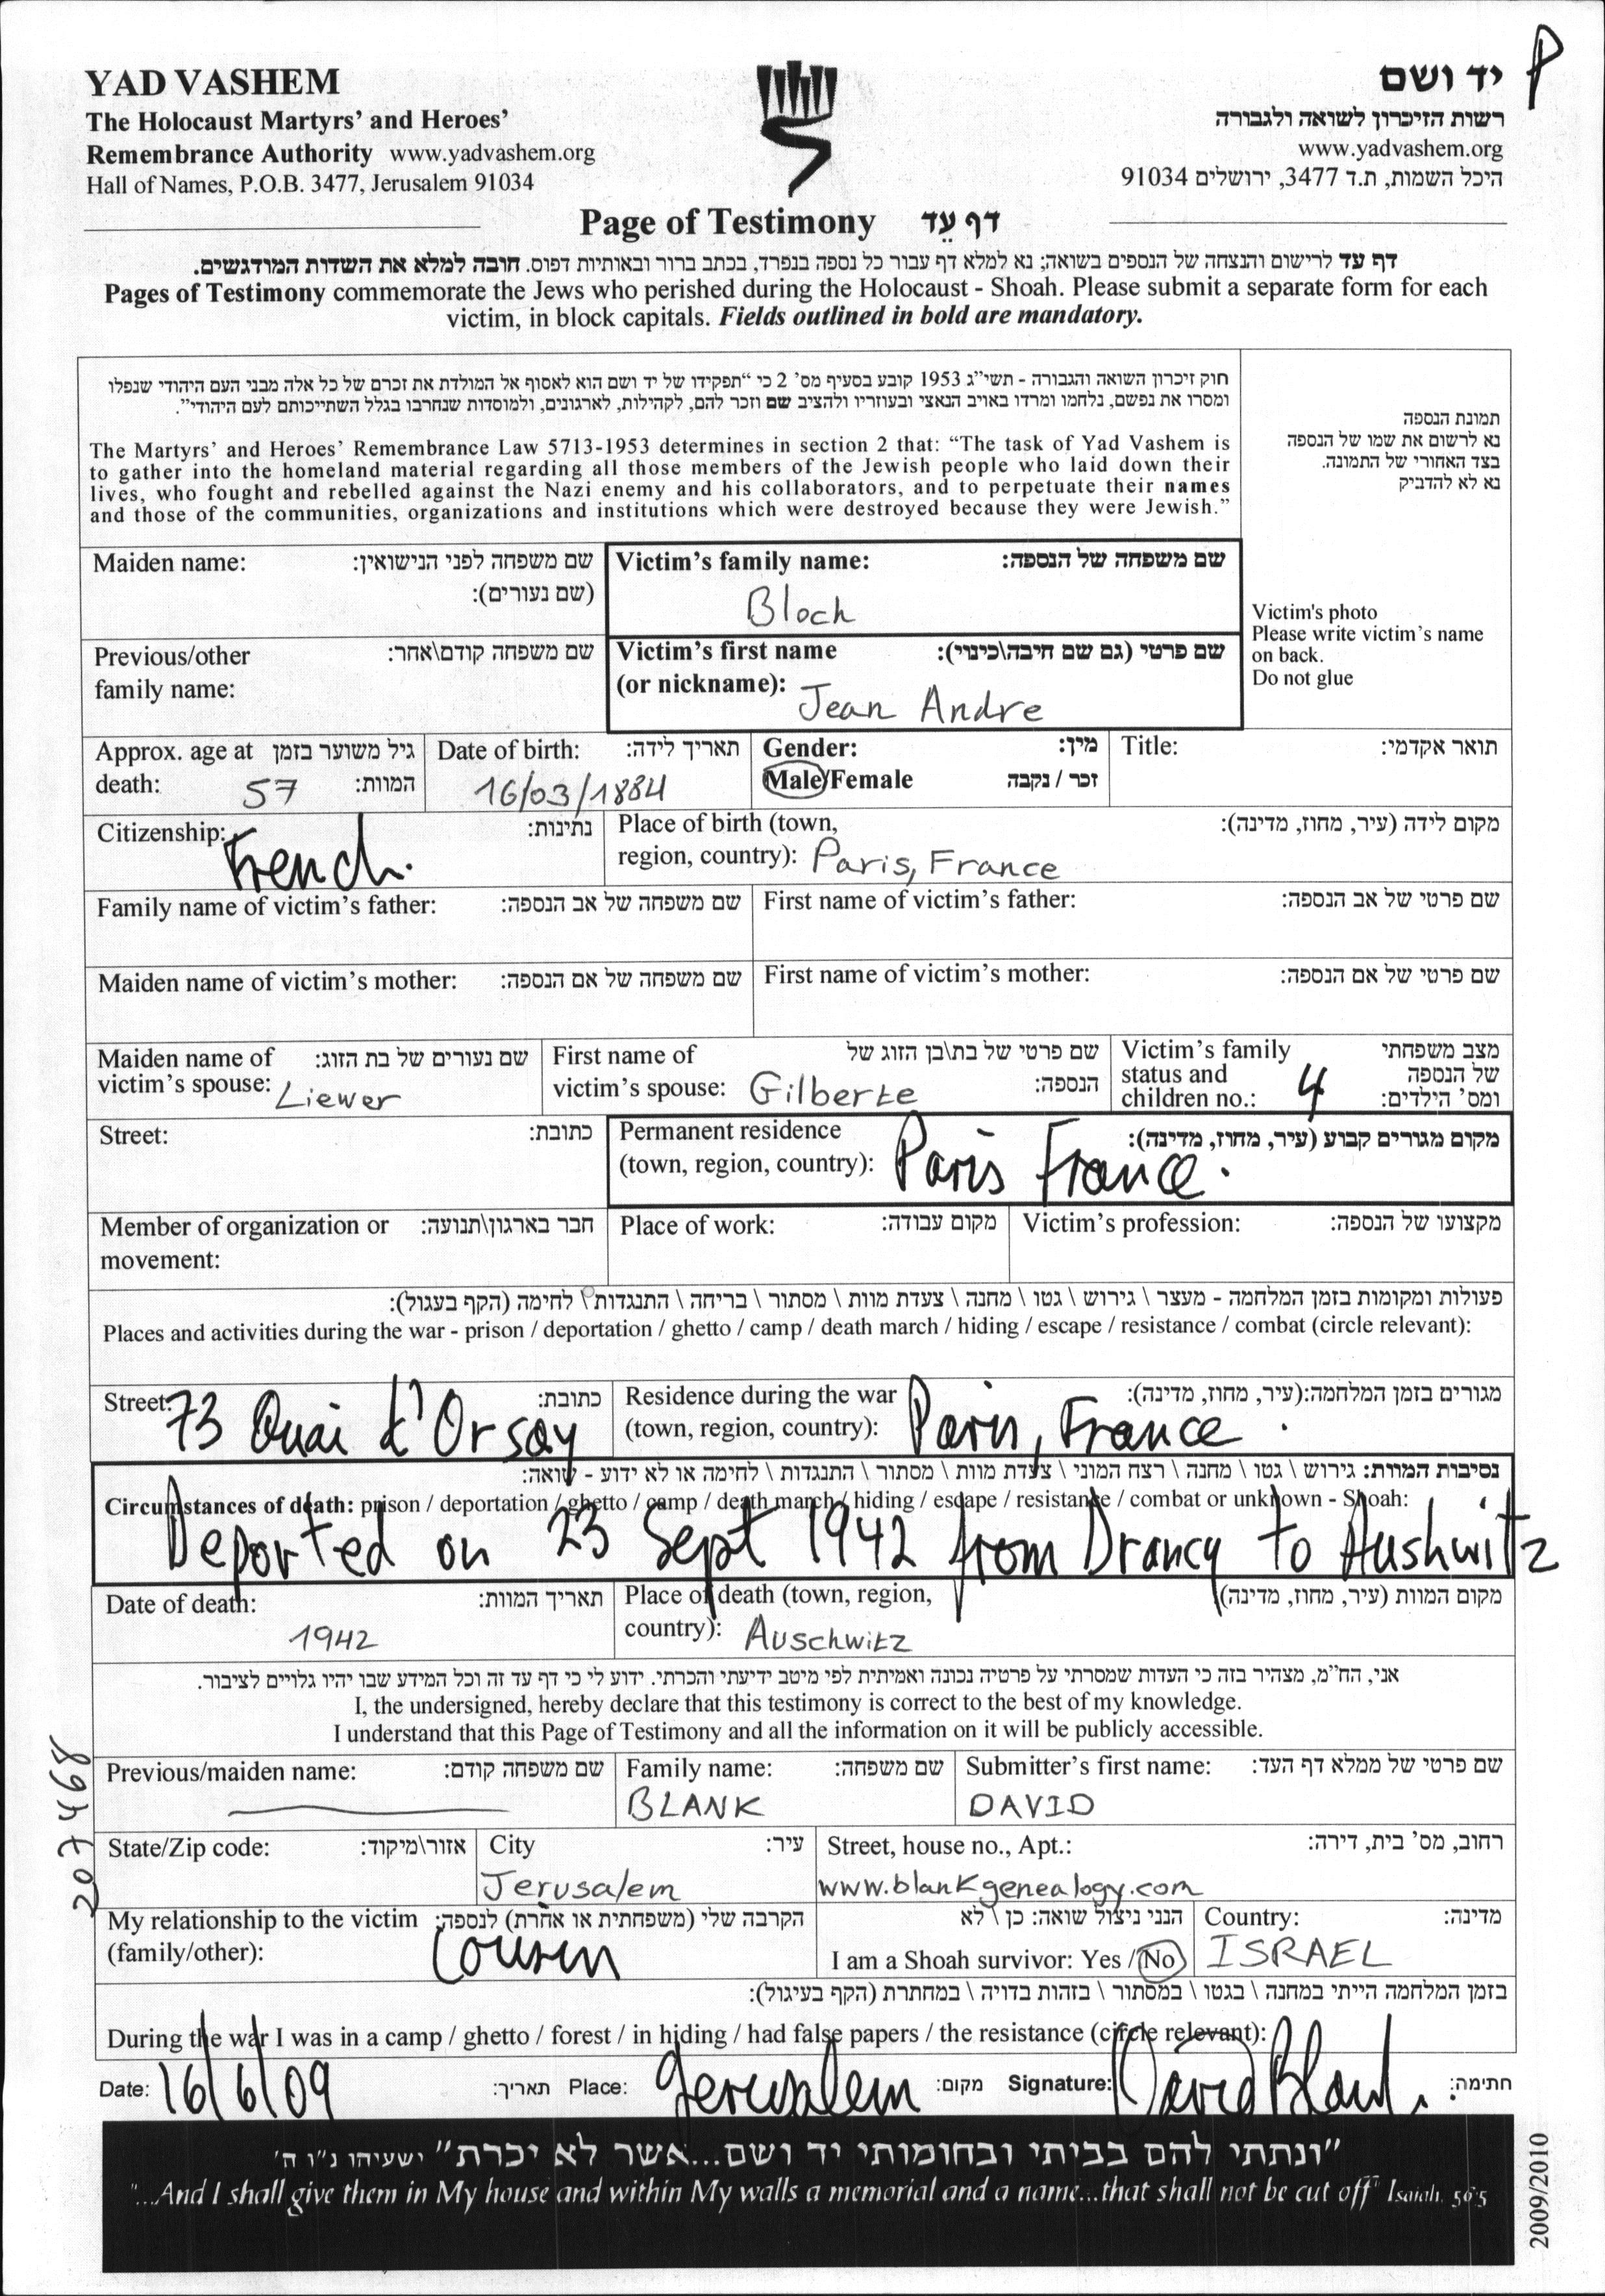 P
YAD VASHEM
The Holocaust Martyrs' and Heroes'
Remembrance Authority www.yadvashem.org
Hall of Names, P.O.B. 3477, Jerusalem 91034
יד ושם
רשות הזיכרון לשואה ולגבורה
www.yadvashem.org
היכל השמות, ת.ד 3477, ירושלים 91034
Page of Testimony דף עֵד
דף עד לרישום והנצחה של הנספים בשואה; נא למלא דף עבור כל נספה בנפרד, בכתב ברור ובאותיות דפוס. חובה למלא את השדות המודגשים.
Pages of Testimony commemorate the Jews who perished during the Holocaust - Shoah. Please submit a separate form for each
victim, in block capitals. Fields outlined in bold are mandatory.
חוק זיכרון השואה והגבורה - תשי"ג 1953 קובע בסעיף מס' 2 כי "תפקידו של יד ושם הוא לאסוף אל המולדת את זכרם של כל אלה מבני העם היהודי שנפלו
ומסרו את נפשם, נלחמו ומרדו באויב הנאצי ובעוזריו ולהציב שם וזכר להם, לקהילות, לארגונים, ולמוסדות שנחרבו בגלל השתייכותם לעם היהודי".
The Martyrs' and Heroes' Remembrance Law 5713-1953 determines in section 2 that: "The task of Yad Vashem is
to gather into the homeland material regarding all those members of the Jewish people who laid down their
lives, who fought and rebelled against the Nazi enemy and his collaborators, and to perpetuate their names
and those of the communities, organizations and institutions which were destroyed because they were Jewish."
תמונת הנספה
נא לרשום את שמו של הנספה
בצד האחורי של התמונה.
נא לא להדביק
Victim's photo
Please write victim's name
on back.
Do not glue
Maiden name: שם משפחה לפני הנישואין:
(שם נעורים):
Victim's family name: שם משפחה של הנספה:
Bloch
Previous/other שם משפחה קודם\אחר:
family name:
Victim's first name שם פרטי (גם שם חיבה\כינוי):
(or nickname): Jean Andre
Approx. age at גיל משוער בזמן
death: 57 המוות:
Date of birth: תאריך לידה:
16/03/1884
Gender: מין:
Male/Female זכר / נקבה
Title: תואר אקדמי:
Citizenship: נתינות:
French.
Place of birth (town, מקום לידה (עיר, מחוז, מדינה):
region, country): Paris, France
Family name of victim's father: שם משפחה של אב הנספה:
First name of victim's father: שם פרטי של אב הנספה:
Maiden name of victim's mother: שם משפחה של אם הנספה:
First name of victim's mother: שם פרטי של אם הנספה:
Maiden name of שם נעורים של בת הזוג:
victim's spouse: Liewer
First name of שם פרטי של בת\בן הזוג של
victim's spouse: Gilberte הנספה:
Victim's family מצב משפחתי
status and של הנספה
children no.: 4 ומס' הילדים:
Street: כתובת:
Permanent residence מקום מגורים קבוע (עיר, מחוז, מדינה):
(town, region, country): Paris France.
Member of organization or חבר בארגון\תנועה:
movement:
Place of work: מקום עבודה:
Victim's profession: מקצועו של הנספה:
פעולות ומקומות בזמן המלחמה - מעצר \ גירוש \ גטו \ מחנה \ צעדת מוות \ מסתור \ בריחה \ התנגדות \ לחימה (הקף בעגול):
Places and activities during the war - prison / deportation / ghetto / camp / death march / hiding / escape / resistance / combat (circle relevant):
Street: כתובת:
73 Quai d'Orsay
Residence during the war מגורים בזמן המלחמה:(עיר, מחוז, מדינה):
(town, region, country): Paris, France.
נסיבות המוות: גירוש \ גטו \ מחנה \ רצח המוני \ צעדת מוות \ מסתור \ התנגדות \ לחימה או לא ידוע - שואה:
Circumstances of death: prison / deportation / ghetto / camp / death march / hiding / escape / resistance / combat or unknown - Shoah:
Deported on 23 Sept 1942 from Drancy to Aushwitz
Date of death: תאריך המוות:
1942
Place of death (town, region, מקום המוות (עיר, מחוז, מדינה)
country): Auschwitz
אני, הח"מ, מצהיר בזה כי העדות שמסרתי על פרטיה נכונה ואמיתית לפי מיטב ידיעתי והכרתי. ידוע לי כי דף עד זה וכל המידע שבו יהיו גלויים לציבור.
I, the undersigned, hereby declare that this testimony is correct to the best of my knowledge.
I understand that this Page of Testimony and all the information on it will be publicly accessible.
Previous/maiden name: שם משפחה קודם:
Family name: שם משפחה:
BLANK
Submitter's first name: שם פרטי של ממלא דף העד:
DAVID
State/Zip code: אזור\מיקוד:
City עיר:
Jerusalem
Street, house no., Apt.: רחוב, מס' בית, דירה:
www.blankgenealogy.com
My relationship to the victim הקרבה שלי (משפחתית או אחרת) לנספה:
(family/other): Cousin
הנני ניצול שואה: כן \ לא
I am a Shoah survivor: Yes / No
Country: מדינה:
ISRAEL
בזמן המלחמה הייתי במחנה \ בגטו \ במסתור \ בזהות בדויה \ במחתרת (הקף בעיגול):
During the war I was in a camp / ghetto / forest / in hiding / had false papers / the resistance (circle relevant):
Date: 16/6/09 תאריך: Place: Jerusalem מקום: Signature: David Blank. חתימה:
"ונתתי להם בביתי ובחומותי יד ושם...אשר לא יכרת" ישעיהו נ"ו ה'
"...And I shall give them in My house and within My walls a memorial and a name...that shall not be cut off" Isaiah. 56:5
2009/2010
207498